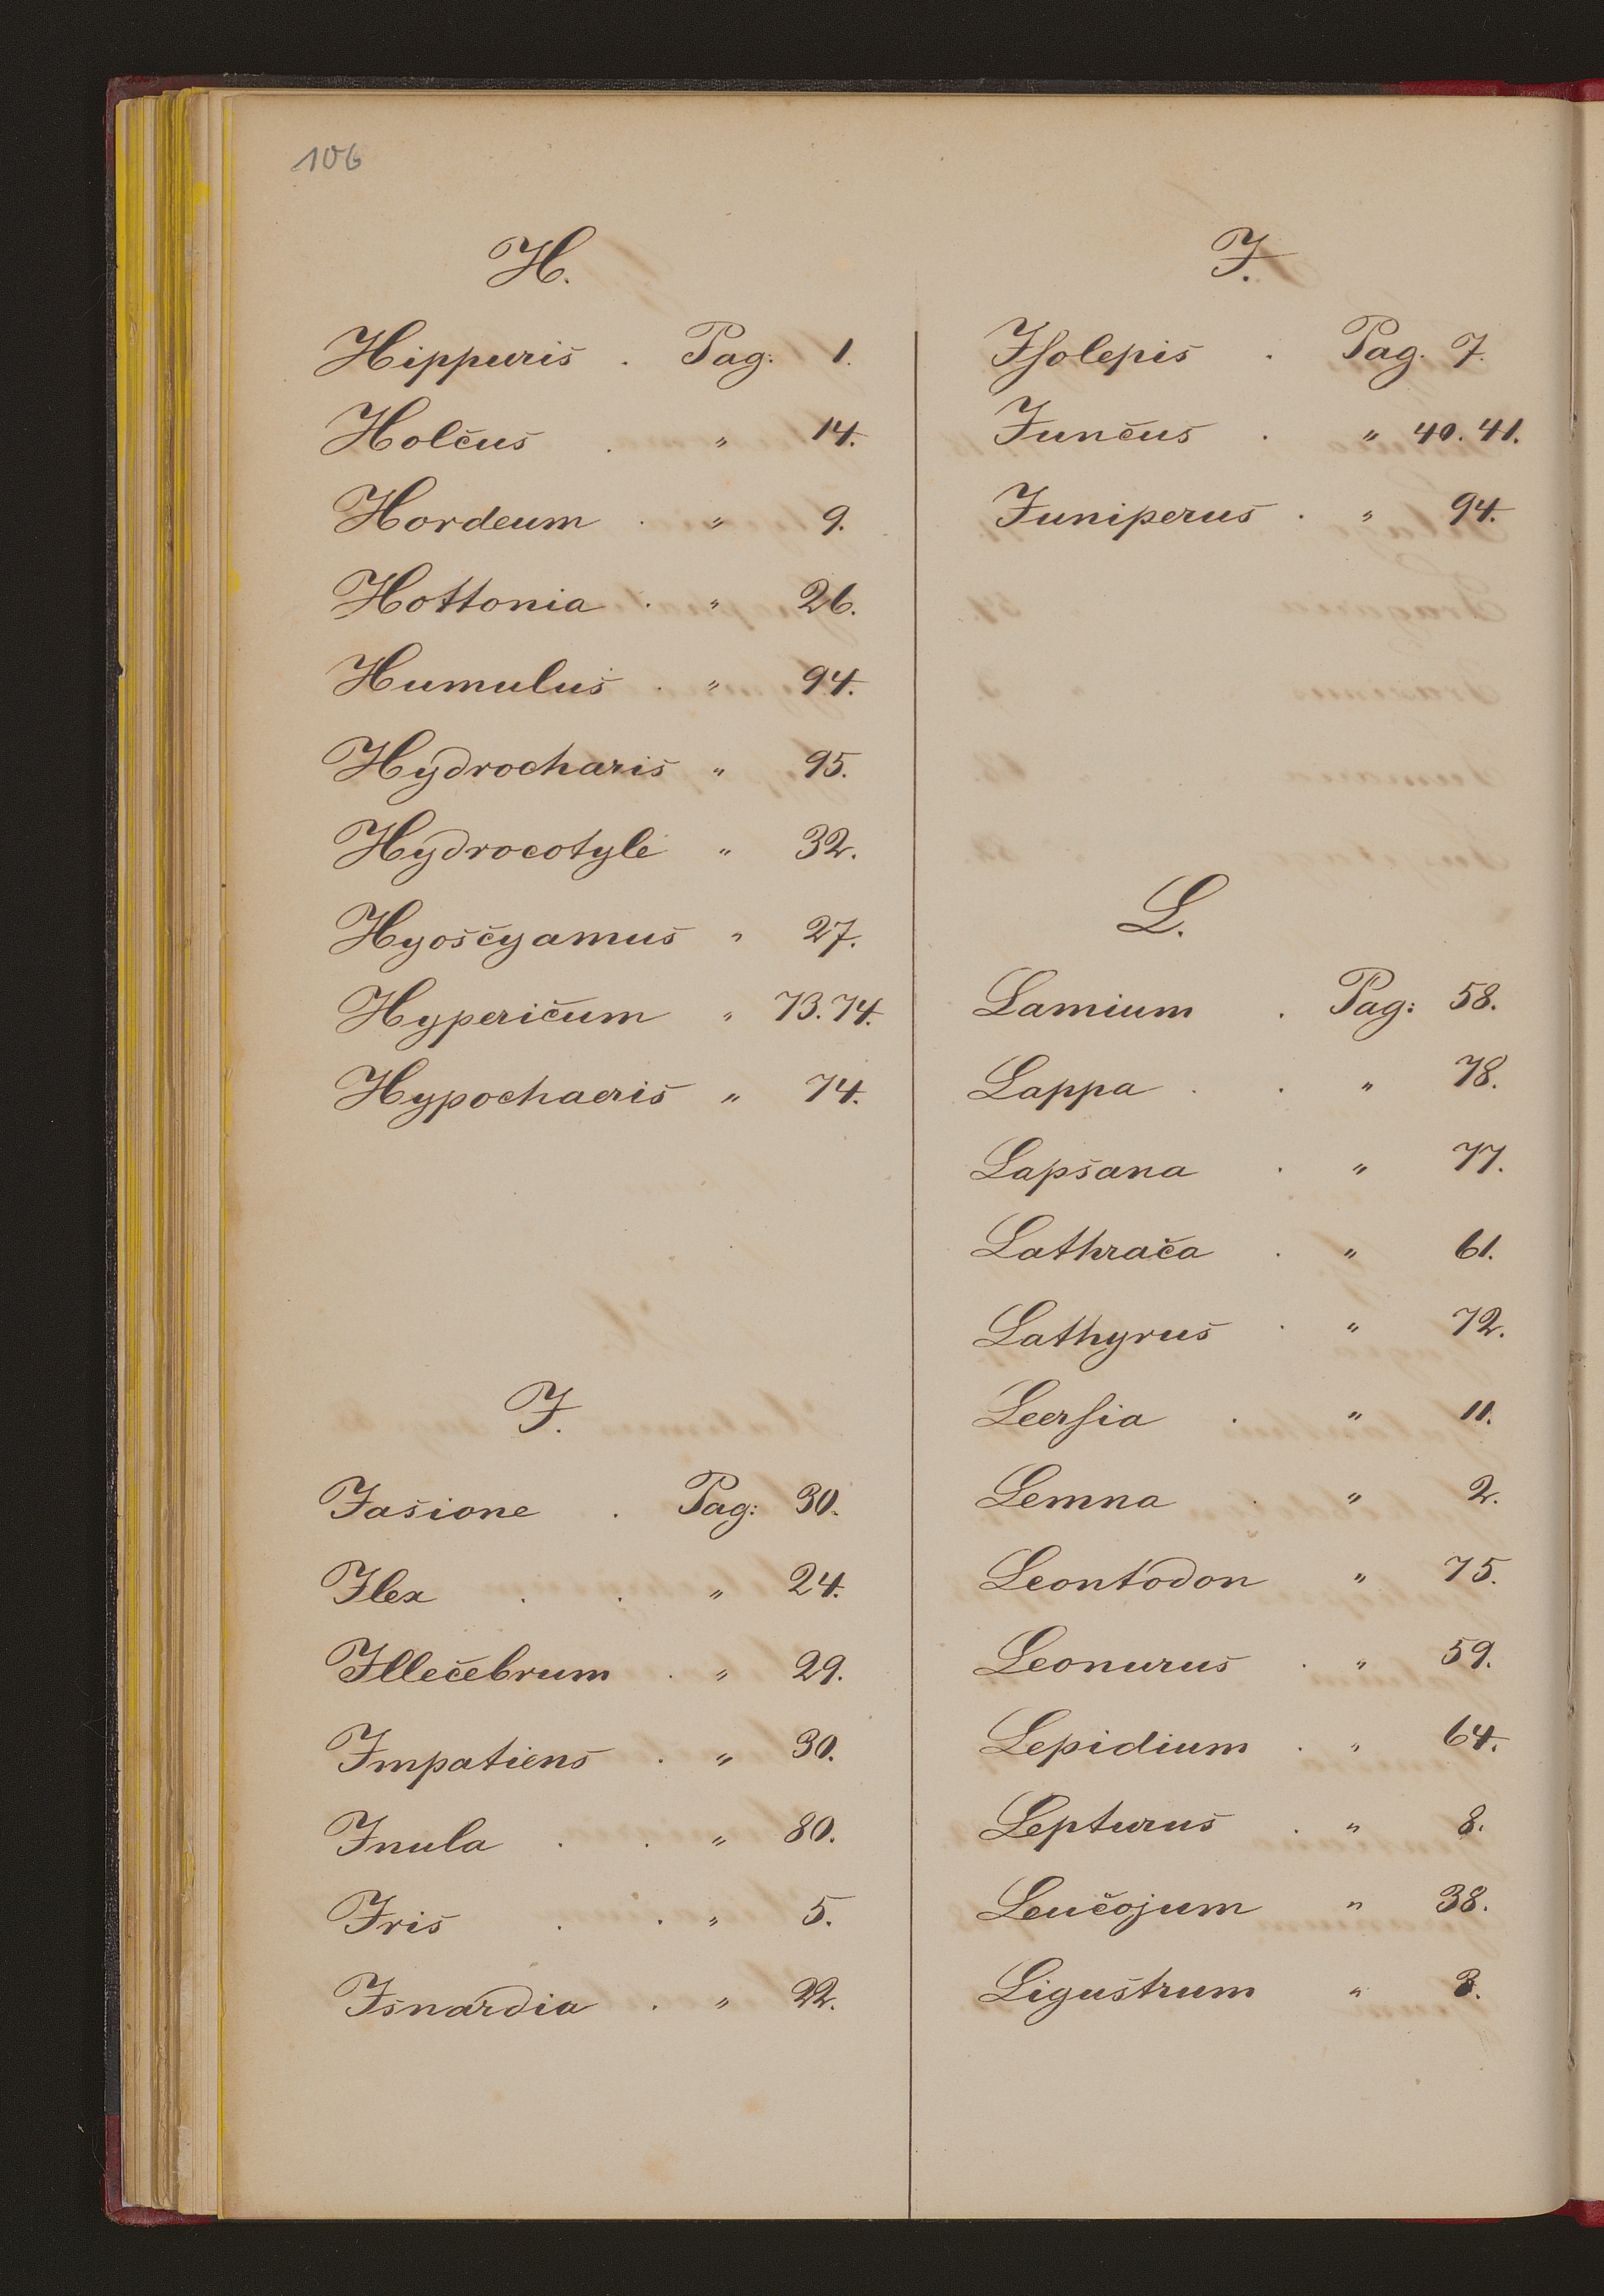 106
H.
Hippuris . Pag: 1.
Holcus . " 14.
Hordeum . " 9.
Hottonia . " 26.
Humulus . " 94.
Hydrocharis " 95.
Hydrocotyle " 32.
Hyoscyamus " 27.
Hypericum " 73. 74.
Hypochaeris " 74.
J.
Jasione . Pag: 30.
Ilex . . " 24.
Illecebrum . " 29.
Impatiens . " 30.
Inula . . " 80.
Iris . . " 5.
Isnardia . " 22.
J.
Isolepis . Pag. 7.
Juncus . " 40. 41.
Juniperus . " 94.
L.
Lamium . Pag: 58.
Lappa . . " 78.
Lapsana . " 77.
Lathraca . " 61.
Lathyrus . " 72.
Leersia . " 11.
Lemna . " 2.
Leontodon " 75.
Leonurus . " 59.
Lepidium . " 64.
Lepturus . " 8.
Leucojum " 38.
Ligustrum " 3.